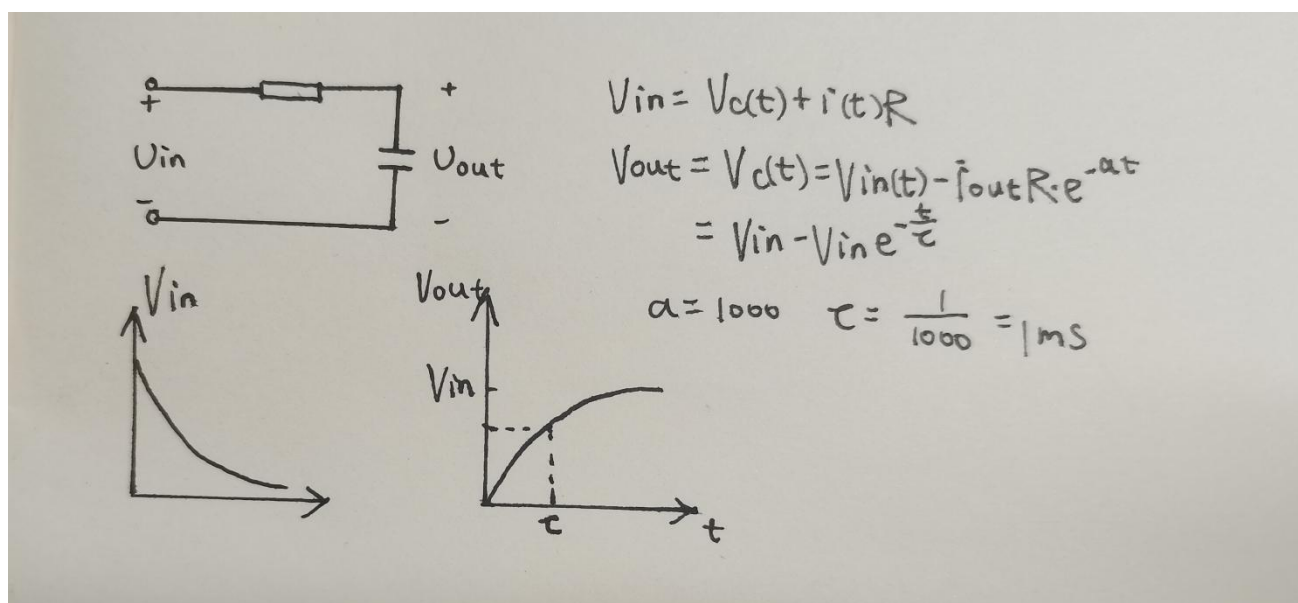 +
+
Uin
Uout
-
-
Vin = Vc(t) + i(t)R
Vout = Vc(t) = Vin(t) - iout R·e^{-at}
= Vin - Vin e^{-t/τ}
a = 1000 τ = 1/1000 = 1ms
Vin
Vout
Vin
τ
t